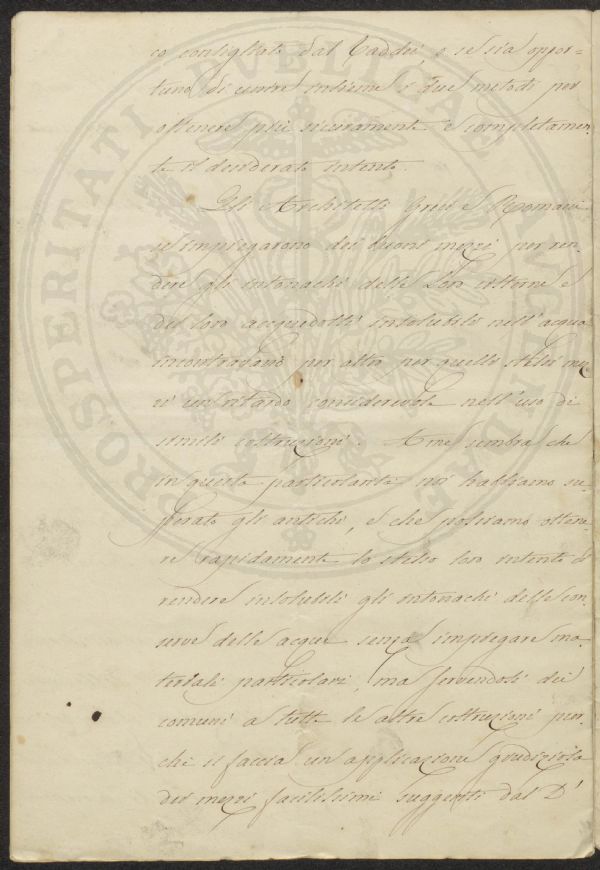 co consigliato dal Taddei, o se sia oppor=
tuno di unire insieme i due metodi per
ottenere più sicuramente e completamen
te il desiderato intento.
Gli Architetti Greci e Romani
se impiegarono dei buoni mezzi per ren
dere gli intonachi delle Loro cisterne e
dei loro acquedotti insolubili nell'acqua
incontravano per altro per quelli stessi mez
zi un ritardo considerevole nell'uso di
simili costruzioni. A me sembra che
in questa particolarità noi habbiamo su
perato gli antichi, e che possiamo ottene
re rapidamente lo stesso loro intento di
rendere insolubili gli intonachi delle con
serve delle acque senza impiegare ma
teriali particolari, ma servendosi dei
comuni a tutte le altre costruzioni per
che si faccia un applicazione giudiziosa
dei mezzi facilissimi suggeriti dal D.r
PROSPERITATI PVBLICAE AVGENDAE